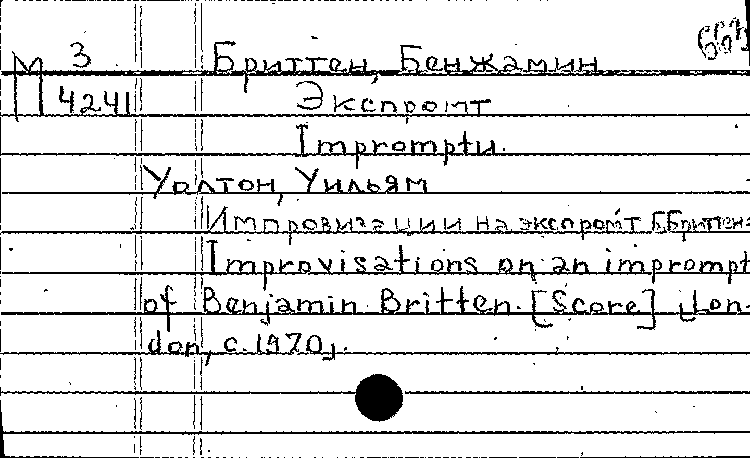 М 3
4241
Бриттен, Бенжамин
Экспромт
Impromptu.
Уолтон, Уильям
Импровизации на экспромт Б.Бриттена
Improvisations on an imprompt
of Benjamin Britten. [Score] [Lon-
don, c.1970].